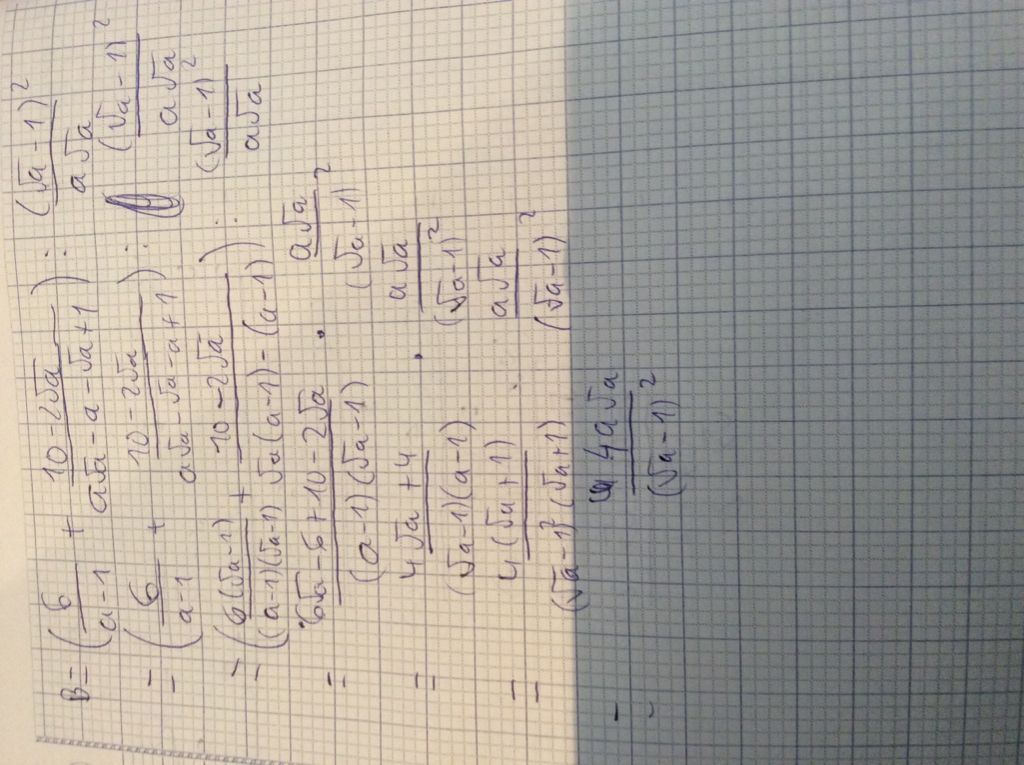 B = (6/(a-1) + (10-2√a)/(a√a - a - √a + 1)) : (√a - 1)²/(a√a)
= (6/(a-1) + (10-2√a)/(a√a - √a - a + 1)) : (√a - 1)²/(a√a)
= (6(√a-1)/((a-1)(√a-1)) + (10-2√a)/(√a(a-1) - (a-1))) : (√a-1)²/(a√a)
= (6√a - 6 + 10 - 2√a)/((a-1)(√a-1)) . a√a/(√a-1)²
= (4√a + 4)/((√a-1)(a-1)) . a√a/(√a-1)²
= 4(√a+1)/((√a-1)²(√a+1)) . a√a/(√a-1)²
= 4a√a/(√a-1)²